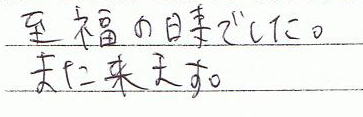 至福の日時でした。
また来ます。